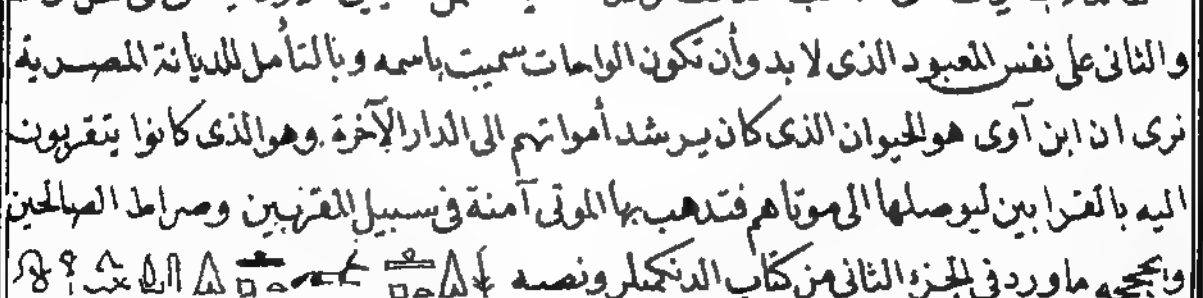 والثانى على نفس المعبود الذى لا بد وأن تكون الواحات سميت باسمه وبالتأمل للديانة المصرية
نرى ان ابن آوى هو الحيوان الذى كان يرشد أمواتهم الى الدار الآخرة وهو الذى كانوا يتقربون
اليه بالقرابين ليوصلها الى موتاهم فتذهب بها الموتى آمنة فى سبيل المقربين وصراط الصالحين
ماورد فى الجزء الثانى من كتاب الدنكميلر ونصه